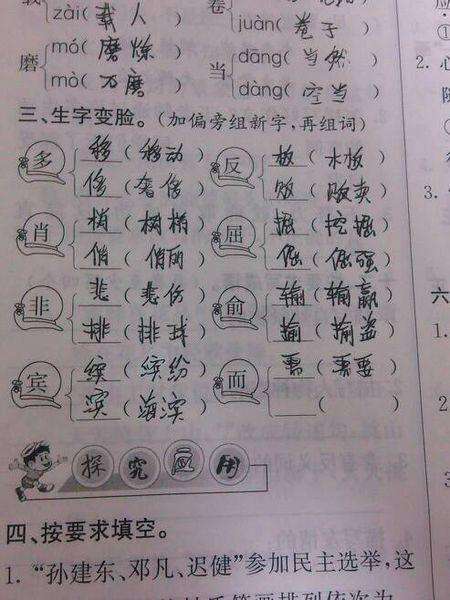 zài(载人) juàn(卷子)
磨 mó(磨炼) 当 dāng(当然)
mò(石磨) dàng(空当)
三、生字变脸。(加偏旁组新字,再组词)
多 移(移动) 反 板(木板)
侈(奢侈) 贩(贩卖)
肖 梢(树梢) 屈 掘(挖掘)
俏(俏丽) 倔(倔强)
非 悲(悲伤) 俞 输(输赢)
排(排球) 揄(揄盗)
宾 缤(缤纷) 而 需(需要)
滨(海滨) ( )
探究应用
四、按要求填空。
1.“孙建东、邓凡、迟健”参加民主选举,这
2.心
3.
六
1.
2